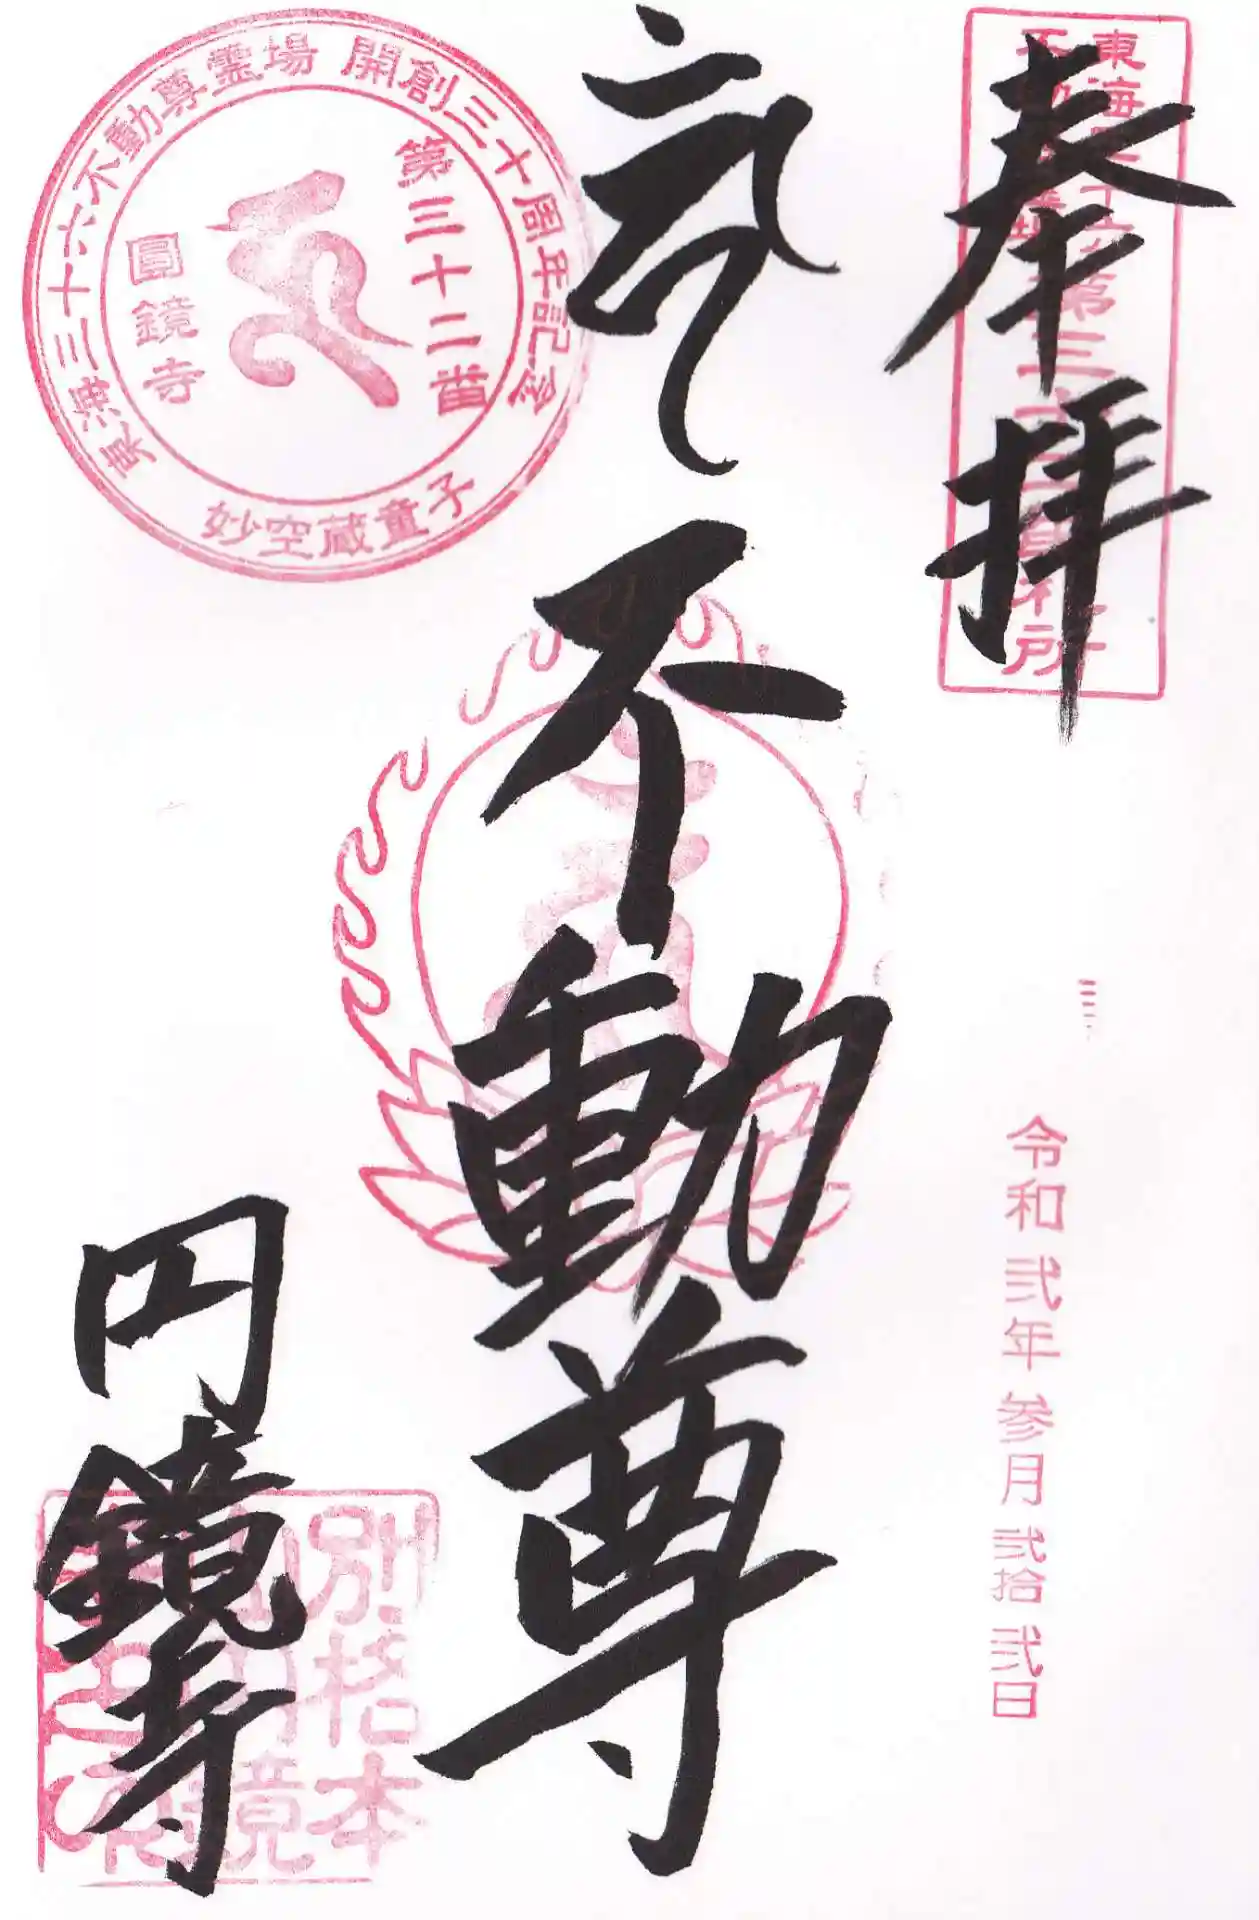 奉拝
東海三十六不動尊霊場第三十二番札所
令和弐年参月弐拾弐日
不動尊
東海三十六不動尊霊場 開創三十周年記念
第三十二番
圓鏡寺
妙空蔵童子
円鏡寺
別格本